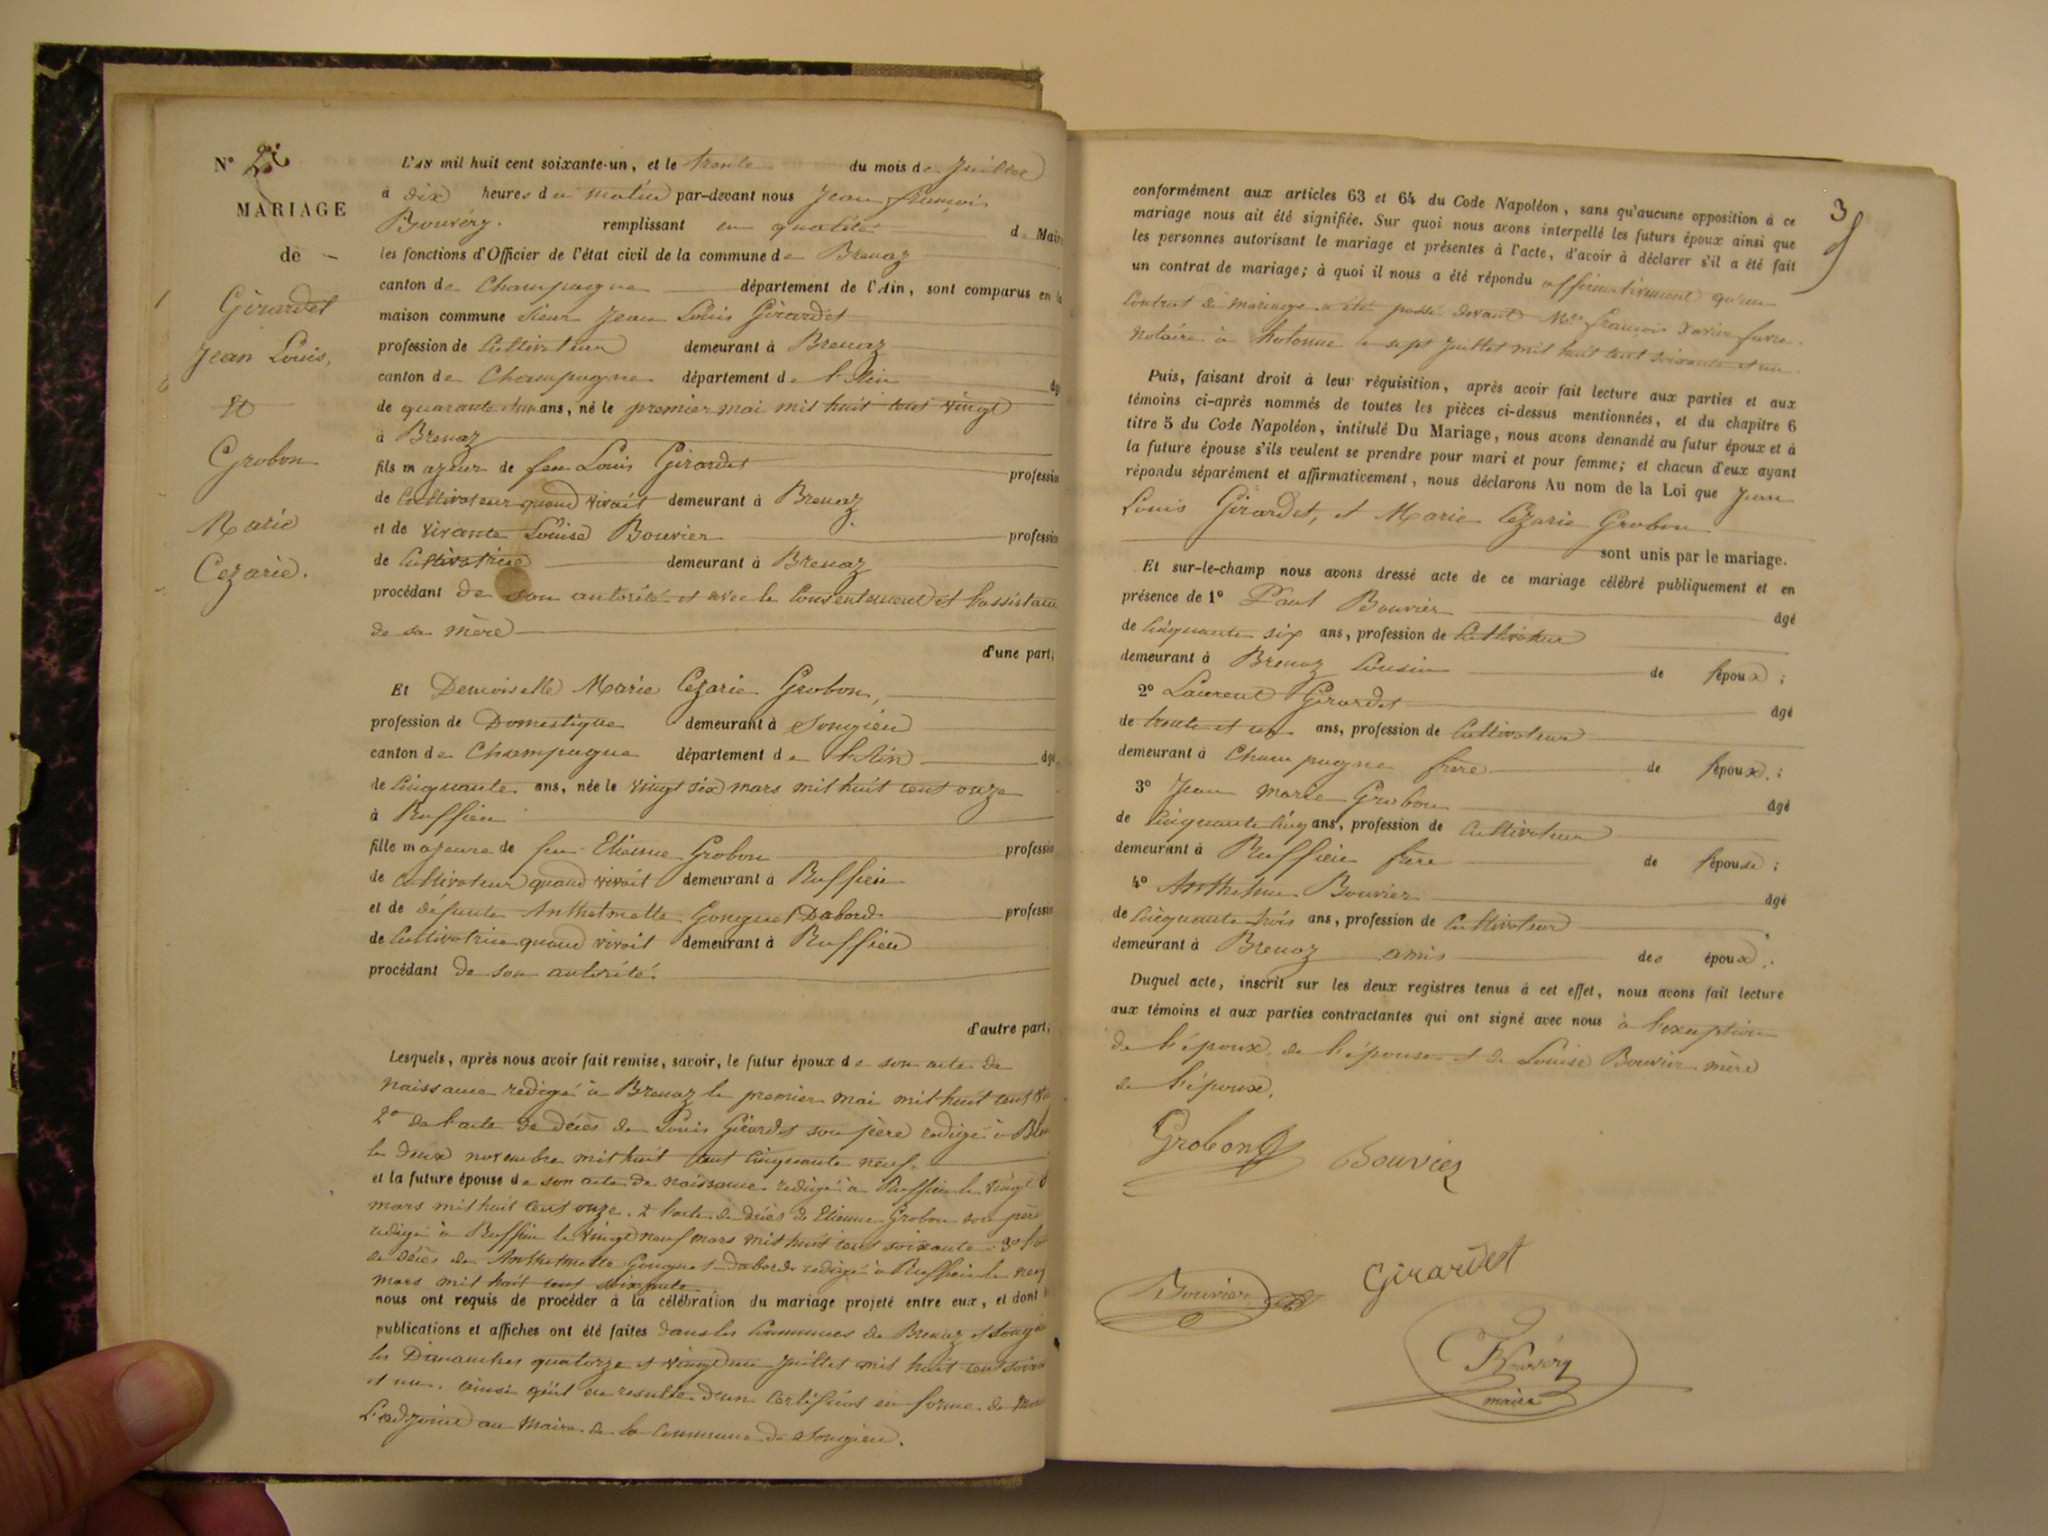 N° 2
MARIAGE
de
Girardet
Jean Louis,
Et
Grobon
Marie
Cezarie.
L'AN mil huit cent soixante-un, et le trente du mois de Juillet
à dix heures du matin par-devant nous Jean françois
Bouvéry. remplissant en qualité de Maire
les fonctions d'Officier de l'état civil de la commune de Brenaz
canton de Champagne département de l'Ain, sont comparus en la
maison commune sieur Jean Louis Girardet
profession de Cultivateur demeurant à Brenaz
canton de Champagne département de l'Ain âgé
de quarante un ans, né le premier mai mil huit cent vingt
à Brenaz
fils majeur de feu Louis Girardet profession
de Cultivateur quand vivait demeurant à Brenaz
et de vivante Louise Bouvier profession
de Cultivatrice demeurant à Brenaz
procédant de son autorité et avec le Consentement et l'assistance
de sa mère
d'une part;
Et Demoiselle Marie Cezarie Grobon,
profession de Domestique demeurant à Songieu
canton de Champagne département de l'Ain âgé
de Cinquante ans, née le vingt six mars mil huit cent onze
à Ruffieu
fille majeure de feu Etienne Grobon profession
de Cultivateur quand vivait demeurant à Ruffieu
et de défunte Anthelmette Gonguet Dabord profession
de Cultivatrice quand vivait demeurant à Ruffieu
procédant de son autorité.
d'autre part;
Lesquels, après nous avoir fait remise, savoir, le futur époux de son acte de
naissance rédigé à Brenaz le premier mai mil huit cent
2° de l'acte de décès de Louis Girardet son père rédigé à
le deux novembre mil huit cent cinquante neuf.
et la future épouse de son acte de naissance rédigé à Ruffieu le vingt
mars mil huit cent onze. 2 l'acte de décès de Etienne Grobon son père
rédigé à Ruffieu le vingt neuf mars mil huit cent soixante. 3°
de décès de Anthelmette Gonguet Dabord rédigé à Ruffieu le
mars mil huit cent soixante
nous ont requis de procéder à la célébration du mariage projeté entre eux, et dont
publications et affiches ont été faites dans les Communes de Brenaz et
les Dimanches quatorze et vingt un Juillet mil huit cent
et un. ainsi qu'il en resulte d'un certificat en forme de
L'adjoint au Maire de la Commune de Songieu.
3
conformément aux articles 63 et 64 du Code Napoléon, sans qu'aucune opposition à ce
mariage nous ait été signifiée. Sur quoi nous avons interpellé les futurs époux ainsi que
les personnes autorisant le mariage et présentes à l'acte, d'avoir à déclarer s'il a été fait
un contrat de mariage; à quoi il nous a été répondu affirmativement qu'un
Contrat de mariage a été passé devant Mtre françois xavier favre
notaire à hotonne le sept Juillet mil huit cent soixante et un
Puis, faisant droit à leur réquisition, après avoir fait lecture aux parties et aux
témoins ci-après nommés de toutes les pièces ci-dessus mentionnées, et du chapitre 6
titre 5 du Code Napoléon, intitulé Du Mariage, nous avons demandé au futur époux et à
la future épouse s'ils veulent se prendre pour mari et pour femme; et chacun d'eux ayant
répondu séparément et affirmativement, nous déclarons Au nom de la Loi que Jean
Louis Girardet, et Marie Cezarie Grobon
sont unis par le mariage.
Et sur-le-champ nous avons dressé acte de ce mariage célébré publiquement et en
présence de 1° Paul Bouvier âgé
de Cinquante six ans, profession de Cultivateur
demeurant à Brenaz Cousin de l'époux;
2° Laurent Girardet âgé
de trente et un ans, profession de Cultivateur
demeurant à Champagne frère de l'époux;
3° Jean Marie Grobon âgé
de Cinquante Cinq ans, profession de Cultivateur
demeurant à Ruffieu frère de l'épouse;
4° Anthelme Bouvier âgé
de Cinquante trois ans, profession de Cultivateur
demeurant à Brenaz amis des époux.
Duquel acte, inscrit sur les deux registres tenus à cet effet, nous avons fait lecture
aux témoins et aux parties contractantes qui ont signé avec nous à l'exeption
de l'époux, de l'épouse et de Louise Bouvier mère
de l'époux.
Grobon Bouvier
Bouvier Girardet
Bouvéry
maire